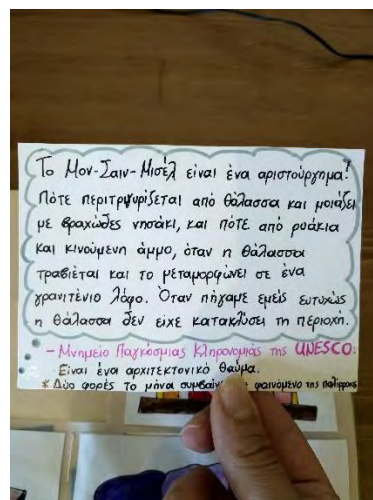 Το Μον-Σαιν-Μισέλ είναι ένα αριστούργημα!
Πότε περιτρυγυρίζεται από θάλασσα και μοιάζει
με βραχώδες νησάκι, και πότε από ρυάκια
και κινούμενη άμμο, όταν η θάλασσα
τραβιέται και το μεταμορφώνει σε ένα
γρανιτένιο λόφο. Όταν πήγαμε εμείς ευτυχώς
η θάλασσα δεν είχε κατακλύσει τη περιοχή.
- Μνημείο Παγκόσμιας Κληρονομιάς της UNESCO:
Είναι ένα αρχιτεκτονικό θαύμα.
* Δύο φορές το μήνα φαινόμενο της παλίρροιας